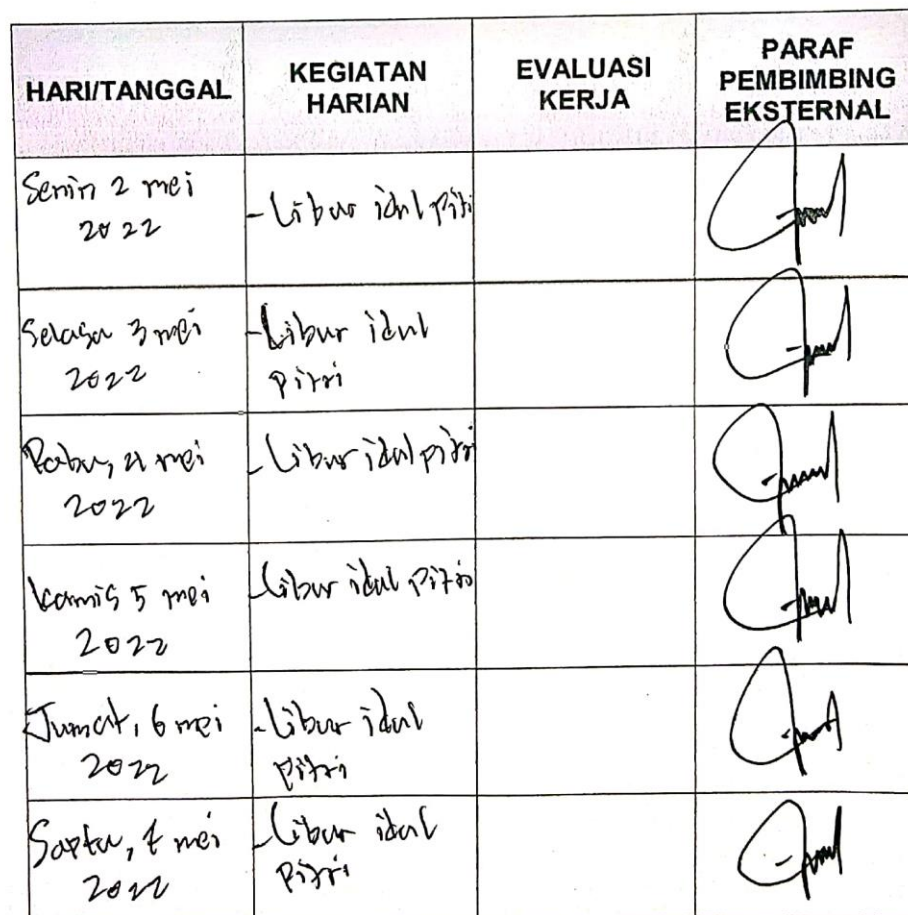 HARI/TANGGAL
KEGIATAN
HARIAN
EVALUASI
KERJA
PARAF
PEMBIMBING
EKSTERNAL
Senin 2 mei
2022
- Libur idul pitri
Selasa 3 mei
2022
- Libur idul
pitri
Rabu, 4 mei
2022
- Libur idul pitri
Kamis 5 mei
2022
- Libur idul pitri
Jumat, 6 mei
2022
- Libur idul
pitri
Saptu, 7 mei
2022
- Libur idul
pitri